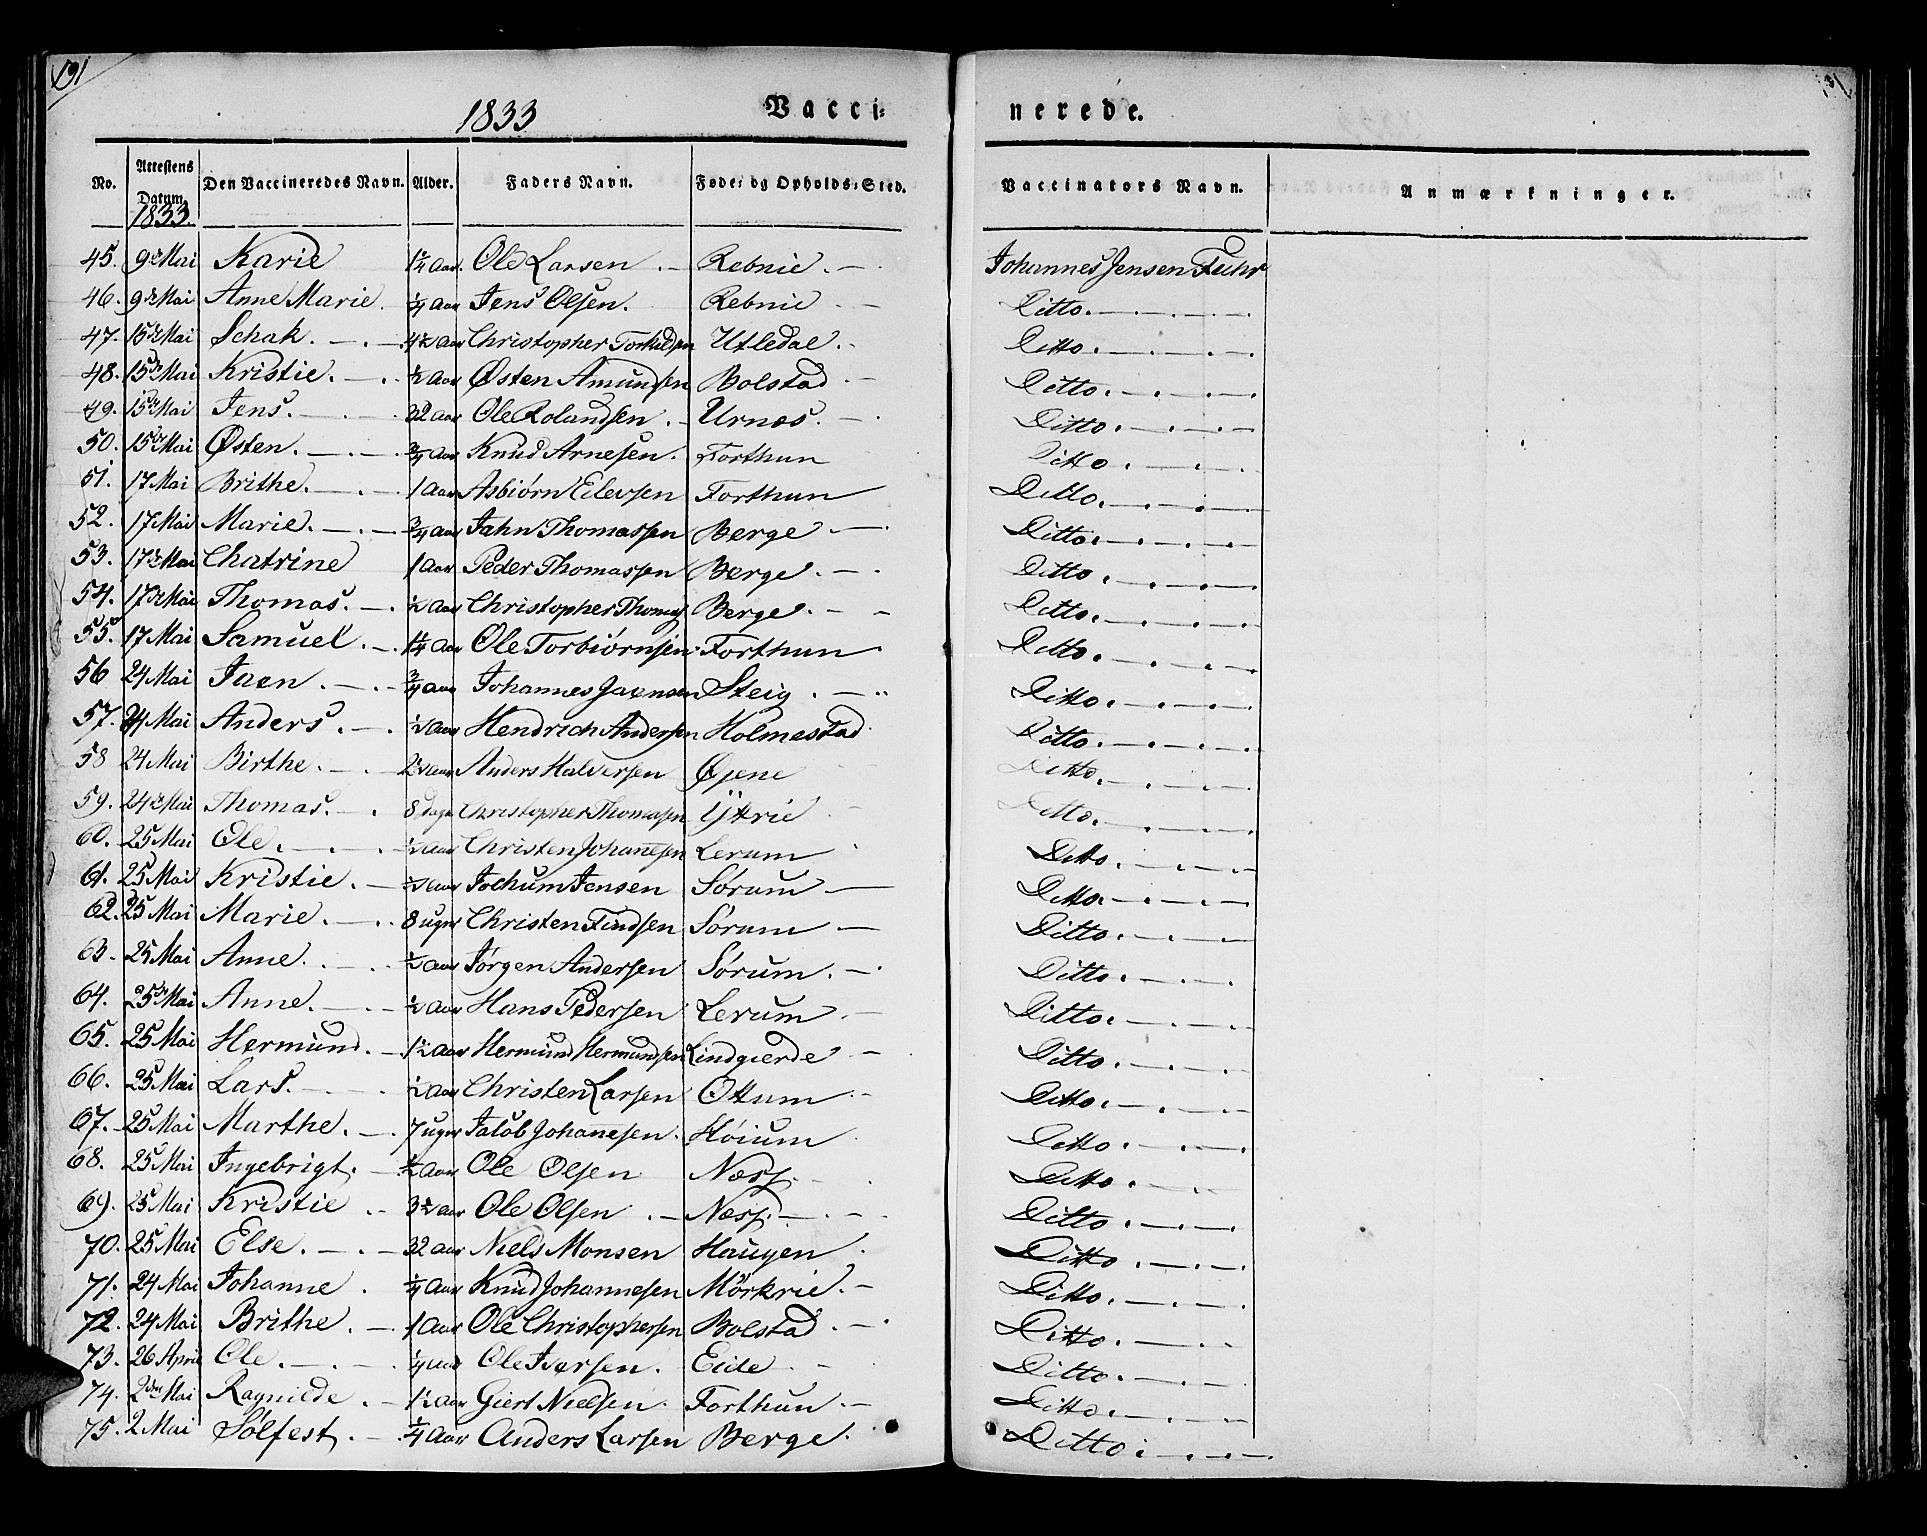 191
1833 Vacci=nerede.
No. Attestens Datum. Den Vaccineredes Navn. Alder. Faders Navn. Føde= og Opholds=Sted. Vaccinators Navn. Anmærkninger.
1833.
45. 9de Mai Karie 1¼ Aar. Ole Larsen Rebnie. Johannes Jensen Fuhr
46. 9de Mai Anne Marie. ¼ Aar Jens Olsen. Rebnie Ditto.
47. 15de Mai Schak. 4½ Aar Christopher Torkildsen Utledal. Ditto.
48. 15de Mai Kristie. ½ Aar Østen Amundsen Bolstad Ditto.
49. 15de Mai Jens. 22 Aar Ole Rolandsen. Urnæs. Ditto.
50. 15de Mai Østen. ¾ Aar Knud Arnesen. Forthun Ditto.
51. 17 Mai Brithe. 1 Aar Asbiørn Eilevsen Forthun Ditto.
52. 17 Mai Marie. ¾ Aar Jahn Thomassen Berge Ditto.
53. 17de Mai Chatrine 1 Aar Peder Thomassen Berge. Ditto.
54. 17de Mai Thomas. ½ Aar Christopher Thomas Berge. Ditto.
55. 17 Mai Samuel. 1¼ Aar Ole Torbiørnsen Forthun Ditto.
56 24 Mai Jaen. ¾ Aar Johannes Jaensen Steig. Ditto.
57. 24 Mai Anders. ½ Aar Hendrich Andersen Holmestad Ditto.
58 24 Mai Birthe. 2½ Aar Anders Halversen Øjene Ditto.
59. 24de Mai Thomas. 8 dage Christopher Thomasen Ÿttrie Ditto.
60. 25 Mai Ole. ½ Aar Christen Johanesen Lerum Ditto.
61. 25 Mai Kristie. ½ Aar Jochum Jensen Sørum Ditto.
62. 25 Mai Marie. 8 uger Christen Findsen Sørum Ditto.
63. 25 Mai Anne. ½ Aar Jørgen Andersen Sørum. Ditto.
64. 25de Mai Anne. ½ Aar Hans Pedersen Lerum. Ditto.
65. 25 Mai Hermund. 1½ Aar Hermund Hermundsen Lindgierde Ditto.
66. 25 Mai Lars. ½ Aar Christen Larsen Ottum Ditto.
67. 25 Mai Marthe. 7 uger Jakob Johanesen. Høium Ditto.
68. 25 Mai Ingebrigt. ½ Aar Ole Olsen Næss. Ditto.
69. 25 Mai Kristie 3½ Aar Ole Olsen. Næss. Ditto.
70. 25 Mai Else. 32 Aar Niels Monsen Haugen Ditto
71. 24 Mai Johanne ¼ Aar Knud Johannesen Mörkrie. Ditto.
72. 24 Mai Brithe. 1 Aar Ole Christophersen Bolstad. Ditto.
73. 26 April Ole. ¼ Aar Ole Iversen. Eide Ditto.
74. 2den Mai Ragnilde 1½ Aar Giert Nielsen. Forthun Ditto.
75. 2 Mai Sølfest. ¼ Aar Anders Larsen Berge. Ditto.